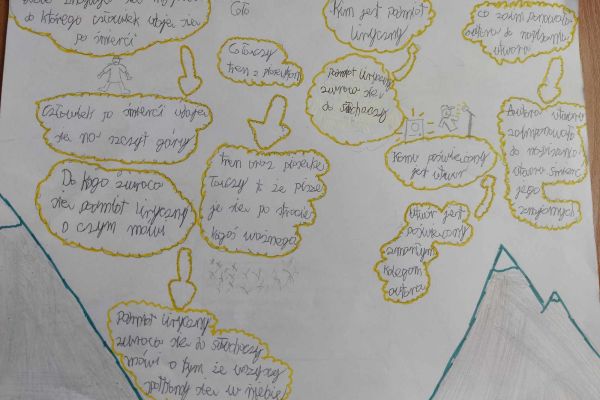 do którego człowiek udaje się
po śmierci
Człowiek po śmierci udaje
się na szczyt góry
Do kogo zwraca
się podmiot liryczny
o czym mówi
Podmiot liryczny
zwraca się do słuchaczy
mówi o tym że wszyscy
spotkamy się w niebie
Co łą
Co łączy
tren z piosenką
tren oraz piosenkę
łączy to że pisze
je się po stracie
kogoś ważnego
Kim jest podmiot
liryczny
podmiot liryczny
zwraca się
do słuchaczy
Komu poświęcony
jest utwór
utwór jest
poświęcony
zmarłym
kolegom
autora
co
autora do napisania
utworu
Autora utworu
zainspirowała
do napisania
utworu śmierć
jego
znajomych